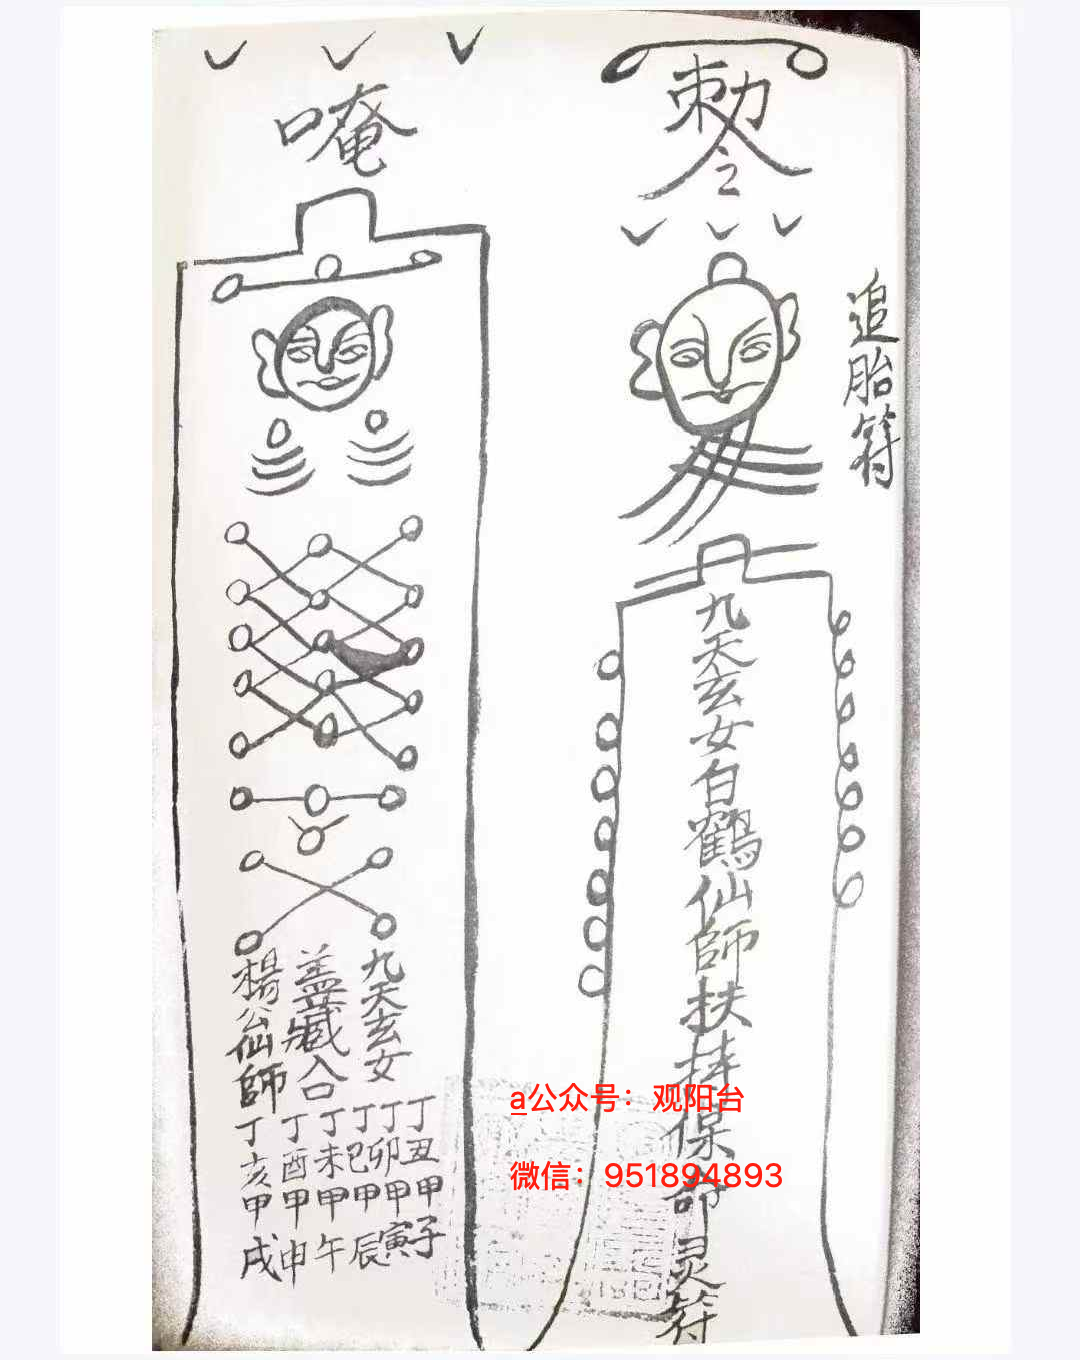 追胎符
勅令
九天玄女白鶴仙師扶持保命灵符
唵
九天玄女
盖藏合
楊公仙師
丁丑甲子
丁卯甲寅
丁巳甲辰
丁未甲午
丁酉甲申
丁亥甲戌
a公众号：观阳台
微信：951894893